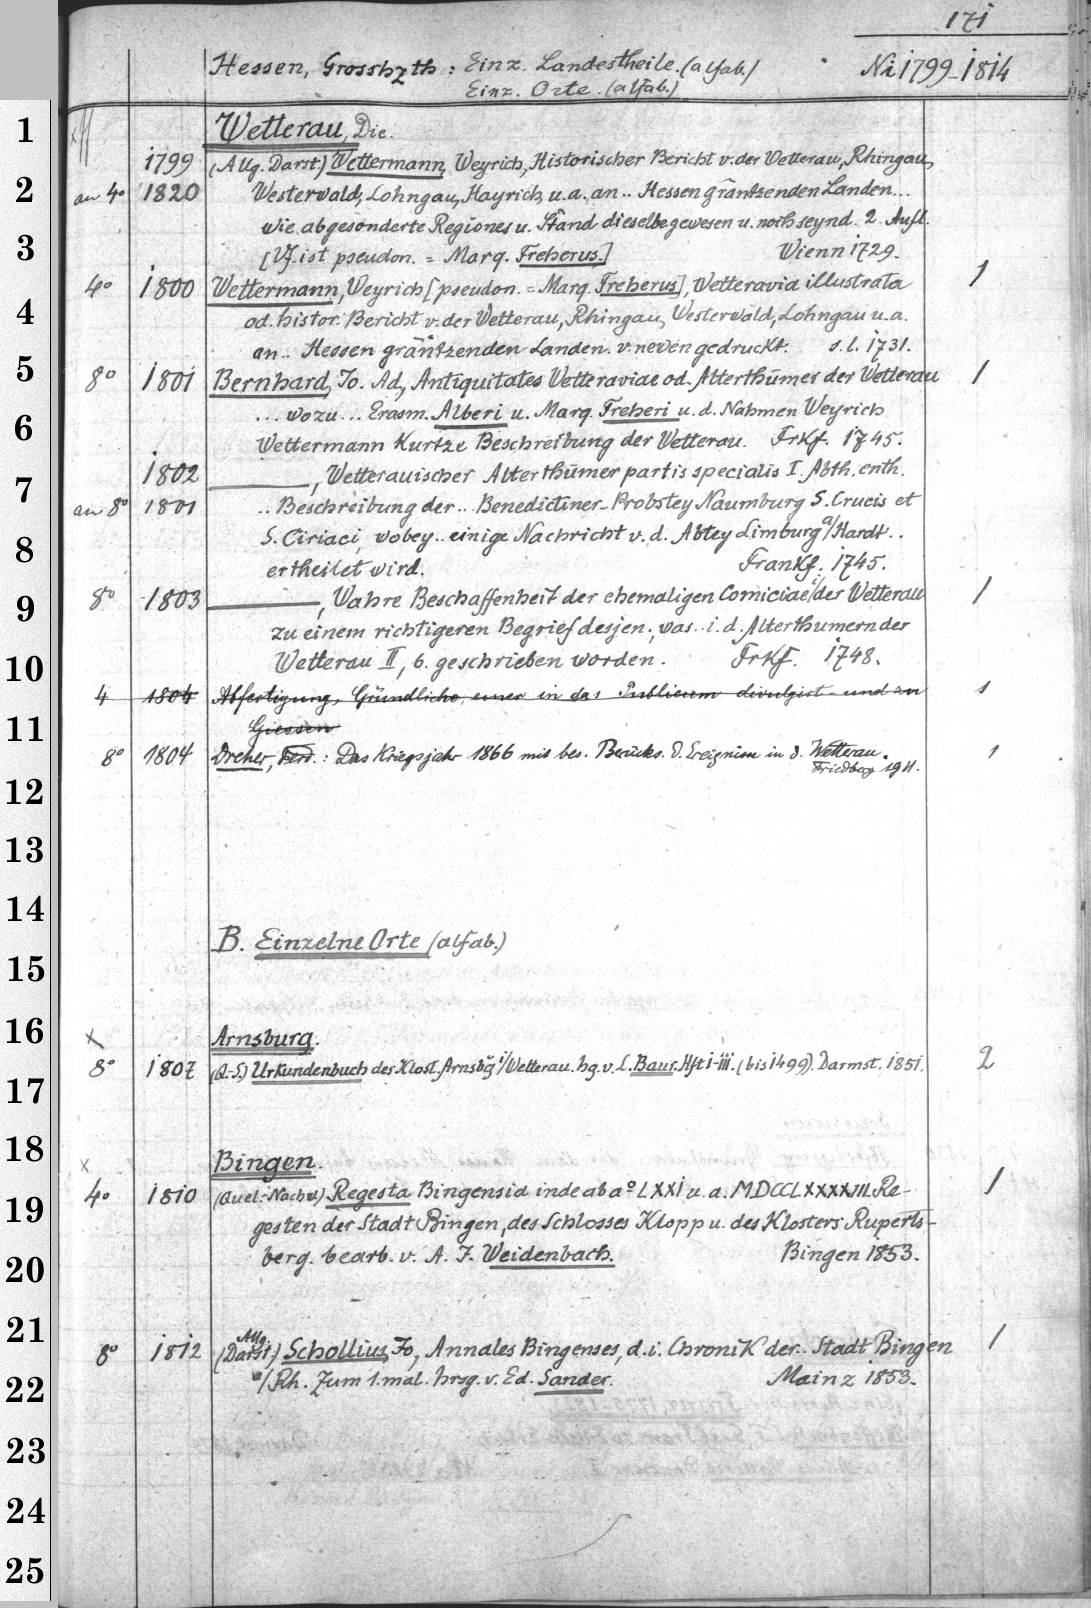 171
Hessen, Grosshzth: Einz. Landestheile. (alfab.) Nr 1799-1814
Einz. Orte. (alfab.)
1
Wetterau, Die.
1799 (Allg. Darst.) Wettermann, Weyrich, Historischer Bericht v. der Wetterau, Rhingau,
2 an 4° 1820 Westerwald, Lohngau, Hayrich, u. a. an .. Hessen gräntzenden Landen...
wie abgesonderte Regiones u. Stand dieselbe gewesen u. noch seynd. 2. Aufl.
3 [Vf. ist pseudon. = Marq. Freherus.] Wienn 1729.
4° 1800 Wettermann, Weyrich [pseudon. = Marq. Freherus], Wetteravia illustrata 1
4 od. histor. Bericht v. der Wetterau, Rhingau, Westerwald, Lohngau u. a.
an .. Hessen gräntzenden Landen. v. neuen gedruckt. s. l. 1731.
5 8° 1801 Bernhard, Jo. Ad., Antiquitates Wetteraviae od. Alterthümer der Wetterau 1
... wozu ... Erasm. Alberi u. Marq. Freheri u. d. Nahmen Weyrich
6 Wettermann Kurtze Beschreibung der Wetterau. Frkf. 1745.
1802 ———, Wetterauischer Alterthümer partis specialis I. Abth. enth.
7 an 8° 1801 .. Beschreibung der .. Benedictiner-Probstey Naumburg S. Crucis et
8 S. Ciriaci, wobey .. einige Nachricht v. d. Abtey Limburg a/Hardt ..
ertheilet wird. Frankf. 1745.
9 8° 1803 ———, Wahre Beschaffenheit der ehemaligen Comiciae i/der Wetterau 1
zu einem richtigeren Begrief desjen., was .. i. d. Alterthumern der
10 Wetterau II, 6. geschrieben worden. Frkf. 1748.
4 1804 Abfertigung, Gründliche, einer in das Publicum divulgirt- und an 1
11 Giessen
8° 1804 Dreher, Ferd.: Das Kriegsjahr 1866 mit bes. Berücks. d. Ereignisse in d. Wetterau. 1
Friedberg 1911.
12
13
14
B. Einzelne Orte (alfab.)
15
16 x Arnsburg.
8° 1807 (Q.-S.) Urkundenbuch des Klost. Arnsbg i/Wetterau. hg. v. L. Baur. Hft i-iii. (bis 1499). Darmst. 1851. 2
17
18 x Bingen.
4° 1810 (Quel.-Nachw.) Regesta Bingensia inde ab a° LXXI u. a. MDCCLXXXXIII. Re- 1
19 gesten der Stadt Bingen, des Schlosses Klopp u. des Klosters Ruperts-
20 berg. bearb. v. A. J. Weidenbach. Bingen 1853.
21
8° 1812 (Allg. Darst.) Schollius, Jo., Annales Bingenses, d. i. Chronik der .. Stadt Bingen 1
22 a/Rh. Zum 1. mal. hrsg. v. Ed. Sander. Mainz 1853.
23
24
25